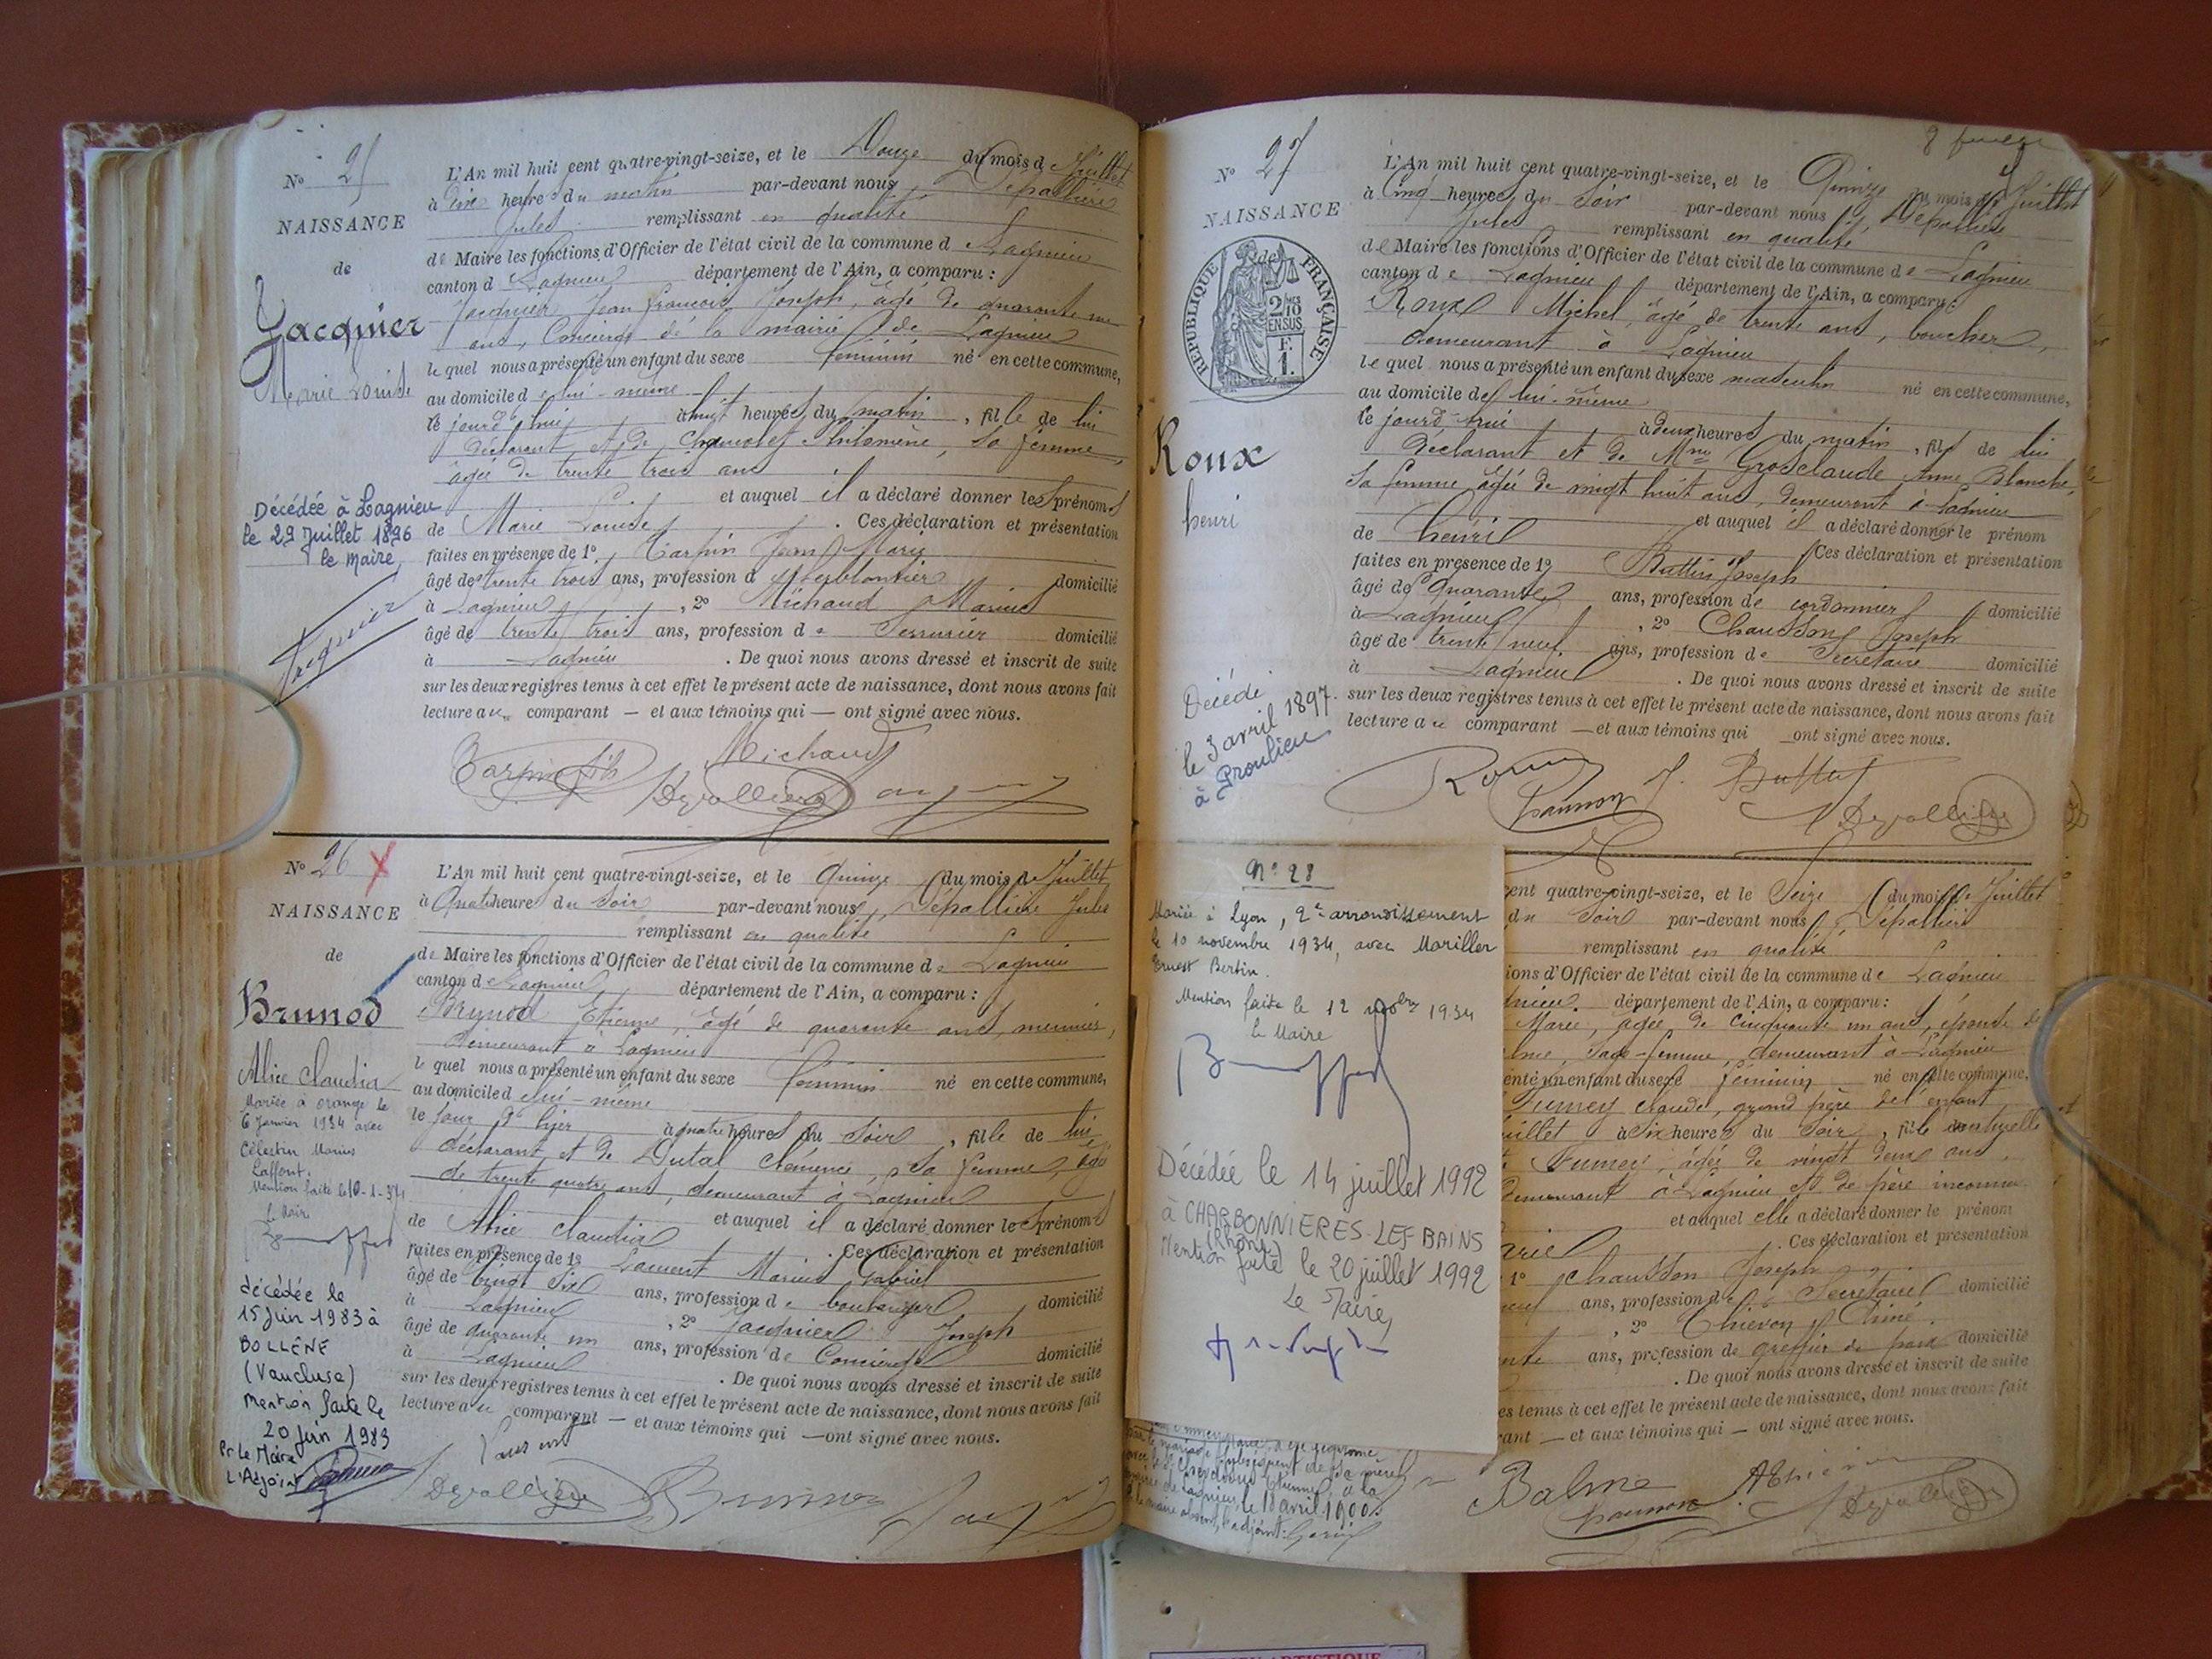 N° 25
NAISSANCE
de
Jacquier
Marie Louise
Décédée à Lagnieu
le 29 Juillet 1896
le Maire,
Jacquier
L'An mil huit cent quatre-vingt-seize, et le Douze du mois de Juillet
à dix heures du matin par-devant nous, Dépallière
Jules remplissant en qualité
de Maire les fonctions d'Officier de l'état civil de la commune d Lagnieu
canton d Lagnieu département de l'Ain, a comparu :
Jacquier Jean François Joseph, âgé de quarante un
ans, Concierge de la mairie de Lagnieu
le quel nous a présenté un enfant du sexe féminin né en cette commune,
au domicile de lui-même
le jourd'hui à huit heures du matin, fille de lui
déclarant et de Philomène, sa femme,
âgée de trente trois ans
et auquel il a déclaré donner les prénoms
de Marie Louise. Ces déclaration et présentation
faites en présence de 1° Tarpin Jean Marie
âgé de trente trois ans, profession d ferblantier domicilié
à Lagnieu, 2° Michaud Marius
âgé de trente trois ans, profession de Serrurier domicilié
à Lagnieu. De quoi nous avons dressé et inscrit de suite
sur les deux registres tenus à cet effet le présent acte de naissance, dont nous avons fait
lecture au comparant — et aux témoins qui — ont signé avec nous.
Tarpin fils Michaud
Dépallière
N° 26 X
NAISSANCE
de
Brunod
Alice Claudia
Mariée à Orange le
6 Janvier 1934 avec
Célestin Marius
Laffont.
Mention faite le 10-1-34
le Maire
décédée le
15 Juin 1983 à
BOLLÈNE
(Vaucluse)
Mention faite le
20 juin 1983
Pr Le Maire
L'Adjoint
L'An mil huit cent quatre-vingt-seize, et le Quinze du mois de Juillet
à Quatre heure du Soir par-devant nous, Dépallière Jules
remplissant en qualité
de Maire les fonctions d'Officier de l'état civil de la commune de Lagnieu
canton de Lagnieu département de l'Ain, a comparu :
Brunod Etienne, âgé de quarante ans, meunier,
demeurant à Lagnieu
le quel nous a présenté un enfant du sexe féminin né en cette commune,
au domicile d lui-même
le jour d'hier à quatre heures du Soir, fille de lui
déclarant et de Dutal Clémence, sa femme, âgée
de trente quatre ans, demeurant à Lagnieu
et auquel il a déclaré donner les prénoms
de Alice Claudia. Ces déclaration et présentation
faites en présence de 1° Laurent Marius Gabriel
âgé de vingt six ans, profession de boulanger domicilié
à Lagnieu, 2° Jacquier Joseph
âgé de quarante un ans, profession de Concierge domicilié
à Lagnieu. De quoi nous avons dressé et inscrit de suite
sur les deux registres tenus à cet effet le présent acte de naissance, dont nous avons fait
lecture au comparant — et aux témoins qui — ont signé avec nous.
Laurent
Dépallière Brunod
N° 27
NAISSANCE
de
REPUBLIQUE FRANÇAISE
2/10
EN SUS
F.
1.
Roux
henri
Décédé
le 3 avril 1897
à Proulieu
8
L'An mil huit cent quatre-vingt-seize, et le Quinze du mois de Juillet
à Cinq heures du Soir par-devant nous Dépallière
Jules remplissant en qualité
de Maire les fonctions d'Officier de l'état civil de la commune de Lagnieu
canton de Lagnieu département de l'Ain, a comparu :
Roux Michel, âgé de trente ans, boucher,
demeurant à Lagnieu
le quel nous a présenté un enfant du sexe masculin né en cette commune,
au domicile de lui-même
le jourd'hui à deux heures du matin, fils de lui
déclarant et de Mme Grosclaude Anne Blanche,
sa femme âgée de vingt huit ans, demeurant à Lagnieu
et auquel il a déclaré donner le prénom
de henri Ces déclaration et présentation
faites en présence de 1° Buttin Joseph
âgé de Quarante ans, profession de cordonnier domicilié
à Lagnieu, 2° Chausson Joseph
âgé de trente neuf ans, profession de Secrétaire domicilié
à Lagnieu. De quoi nous avons dressé et inscrit de suite
sur les deux registres tenus à cet effet le présent acte de naissance, dont nous avons fait
lecture au comparant — et aux témoins qui — ont signé avec nous.
Roux J. Buttin
Chausson Dépallière
N° 28
Mariée à Lyon, 2e arrondissement
le 10 novembre 1934, avec Mariller
Ernest Bertin.
Mention faite le 12 nobre 1934
le Maire
Décédée le 14 juillet 1992
à CHARBONNIERES-LES-BAINS
(Rhône)
Mention faite le 20 juillet 1992
Le Maire,
cent quatre-vingt-seize, et le Seize du mois de Juillet
du Soir par-devant nous, Dépallière
remplissant en qualité
ions d'Officier de l'état civil de la commune de Lagnieu
gnieu département de l'Ain, a comparu :
Marie, âgée de cinquante un ans, épouse de
lme, Sage-femme, demeurant à Lagnieu
enté un enfant du sexe féminin né en cette commune,
Fumey Claude, grand père de l'enfant,
uillet à Six heures du Soir, fille naturelle
Fumey, âgée de vingt deux ans,
demeurant à Lagnieu et de père inconnu
et auquel elle a déclaré donner le prénom
arie. Ces déclaration et présentation
1° Chausson Joseph
neuf ans, profession de Secrétaire domicilié
, 2° Aimé
ente ans, profession de greffier de paix domicilié
. De quoi nous avons dressé et inscrit de suite
es tenus à cet effet le présent acte de naissance, dont nous avons fait
rant — et aux témoins qui — ont signé avec nous.
Balme
Chausson Dépallière
mariage subséquent de sa mère
avec Etienne, à la
mairie de Lagnieu, le 18 avril 1900.
le maire absent, l'adjoint:
ARTISTIQUE